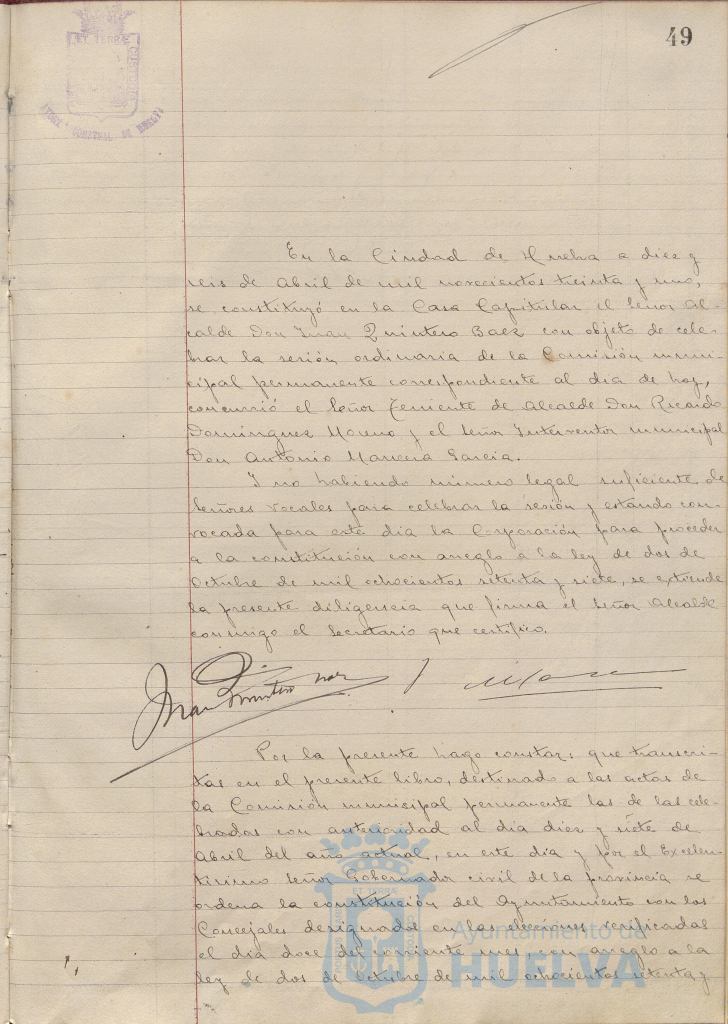 49
ET TERRÆ
CUSTODIA
En la Ciudad de Huelva a diez y
seis de Abril de mil novecientos treinta y uno,
se constituyó en la Casa Capitular el Señor Al-
calde Don Juan Quintero Baez con objeto de cele-
brar la sesión ordinaria de la Comisión muni-
cipal permanente correspondiente al dia de hoy,
concurrió el Señor Teniente de Alcalde Don Ricardo
Dominguez Moreno y el Señor Interventor municipal
Don Antonio García.
Y no habiendo número legal suficiente de
Señores vocales para celebrar la sesión y estando con-
vocada para este dia la Corporación para proceder
a la constitución con arreglo a la ley de dos de
Octubre de mil ochocientos setenta y siete, se extiende
la presente diligencia que firma el Señor Alcalde
conmigo el Secretario que certifico.
Juan Quintero Baez
Por la presente hago constar: que transcri-
tas en el presente libro, destinado a las actas de
la Comisión municipal permanente las de las cele-
bradas con anterioridad al dia diez y siete de
Abril del año actual, en este dia y por el Excelen-
tisimo Señor Gobernador civil de la provincia se
ordena la constitución del Ayuntamiento con los
Concejales designados en las elecciones verificadas
el dia doce del corriente mes, con arreglo a la
ley de dos de Octubre de mil ochocientos setenta y
ET TERRÆ
Ayuntamiento de
HUELVA